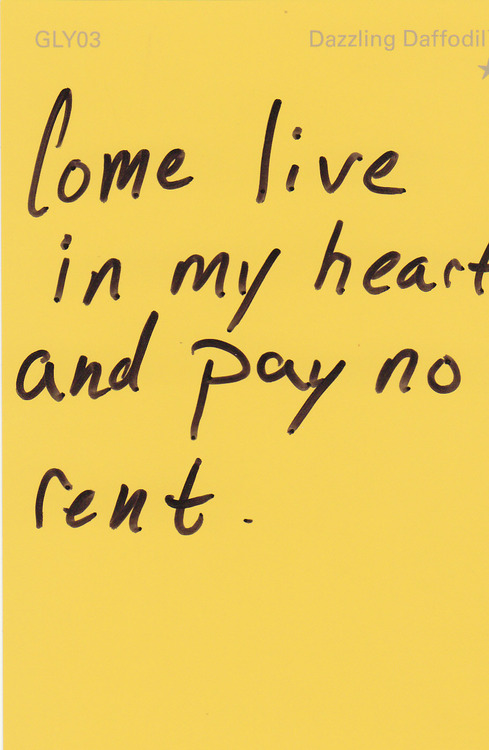 GLY03 Dazzling Daffodil
Come live
in my heart
and pay no
rent.